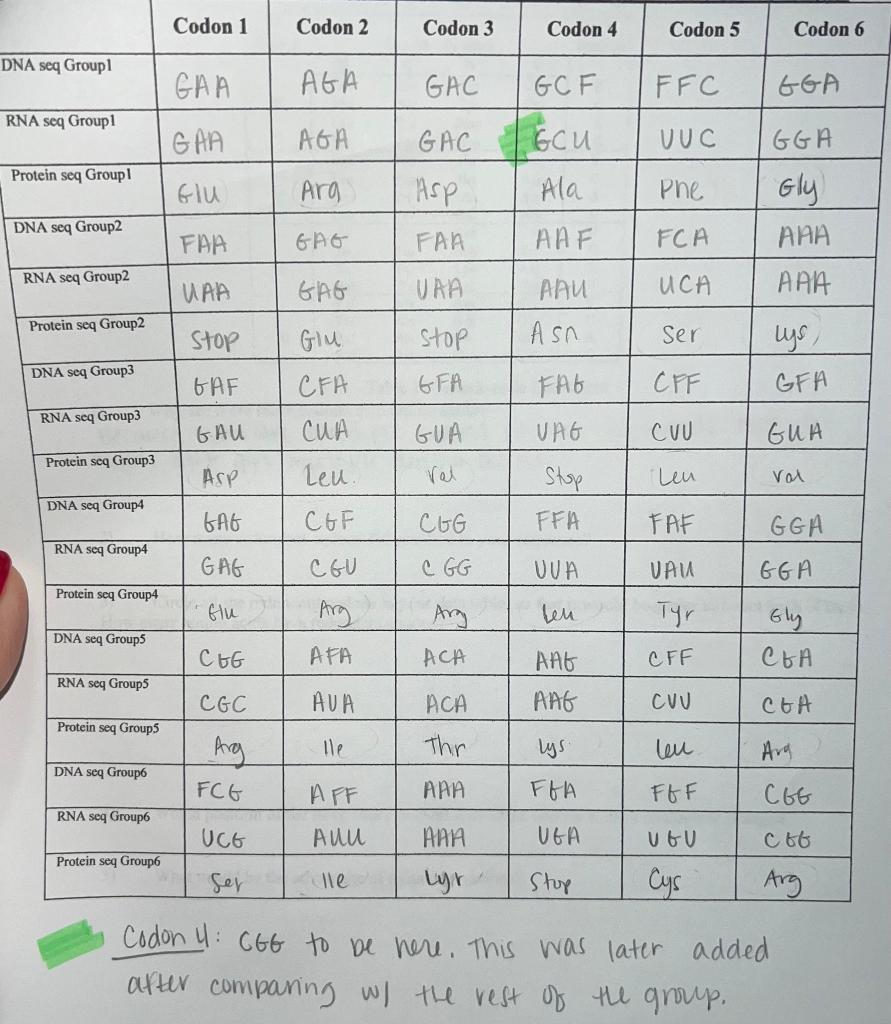 Codon 1 Codon 2 Codon 3 Codon 4 Codon 5 Codon 6
DNA seq Group1 GAA AGA GAC GCF FFC GGA
RNA seq Group1 GAA AGA GAC GCU UUC GGA
Protein seq Group1 Glu Arg Asp Ala Phe Gly
DNA seq Group2 FAA GAG FAA AAF FCA AAA
RNA seq Group2 UAA GAG UAA AAU UCA AAA
Protein seq Group2 Stop Glu Stop Asn Ser Lys
DNA seq Group3 GAF CFA GFA FAG CFF GFA
RNA seq Group3 GAU CUA GUA UAG CUU GUA
Protein seq Group3 Asp Leu Val Stop Leu Val
DNA seq Group4 GAG CGF CGG FFA FAF GGA
RNA seq Group4 GAG CGU CGG UUA UAU GGA
Protein seq Group4 Glu Arg Arg Leu Tyr Gly
DNA seq Group5 CGG AFA ACA AAG CFF CGA
RNA seq Group5 CGC AUA ACA AAG CUU CGA
Protein seq Group5 Arg Ile Thr Lys Leu Arg
DNA seq Group6 FCG AFF AAA FGA FGF CGG
RNA seq Group6 UCG AUU AAA UGA UGU CGG
Protein seq Group6 Ser Ile Lyr Stop Cys Arg
Codon 4: CGG to be here. This was later added
after comparing w/ the rest of the group.